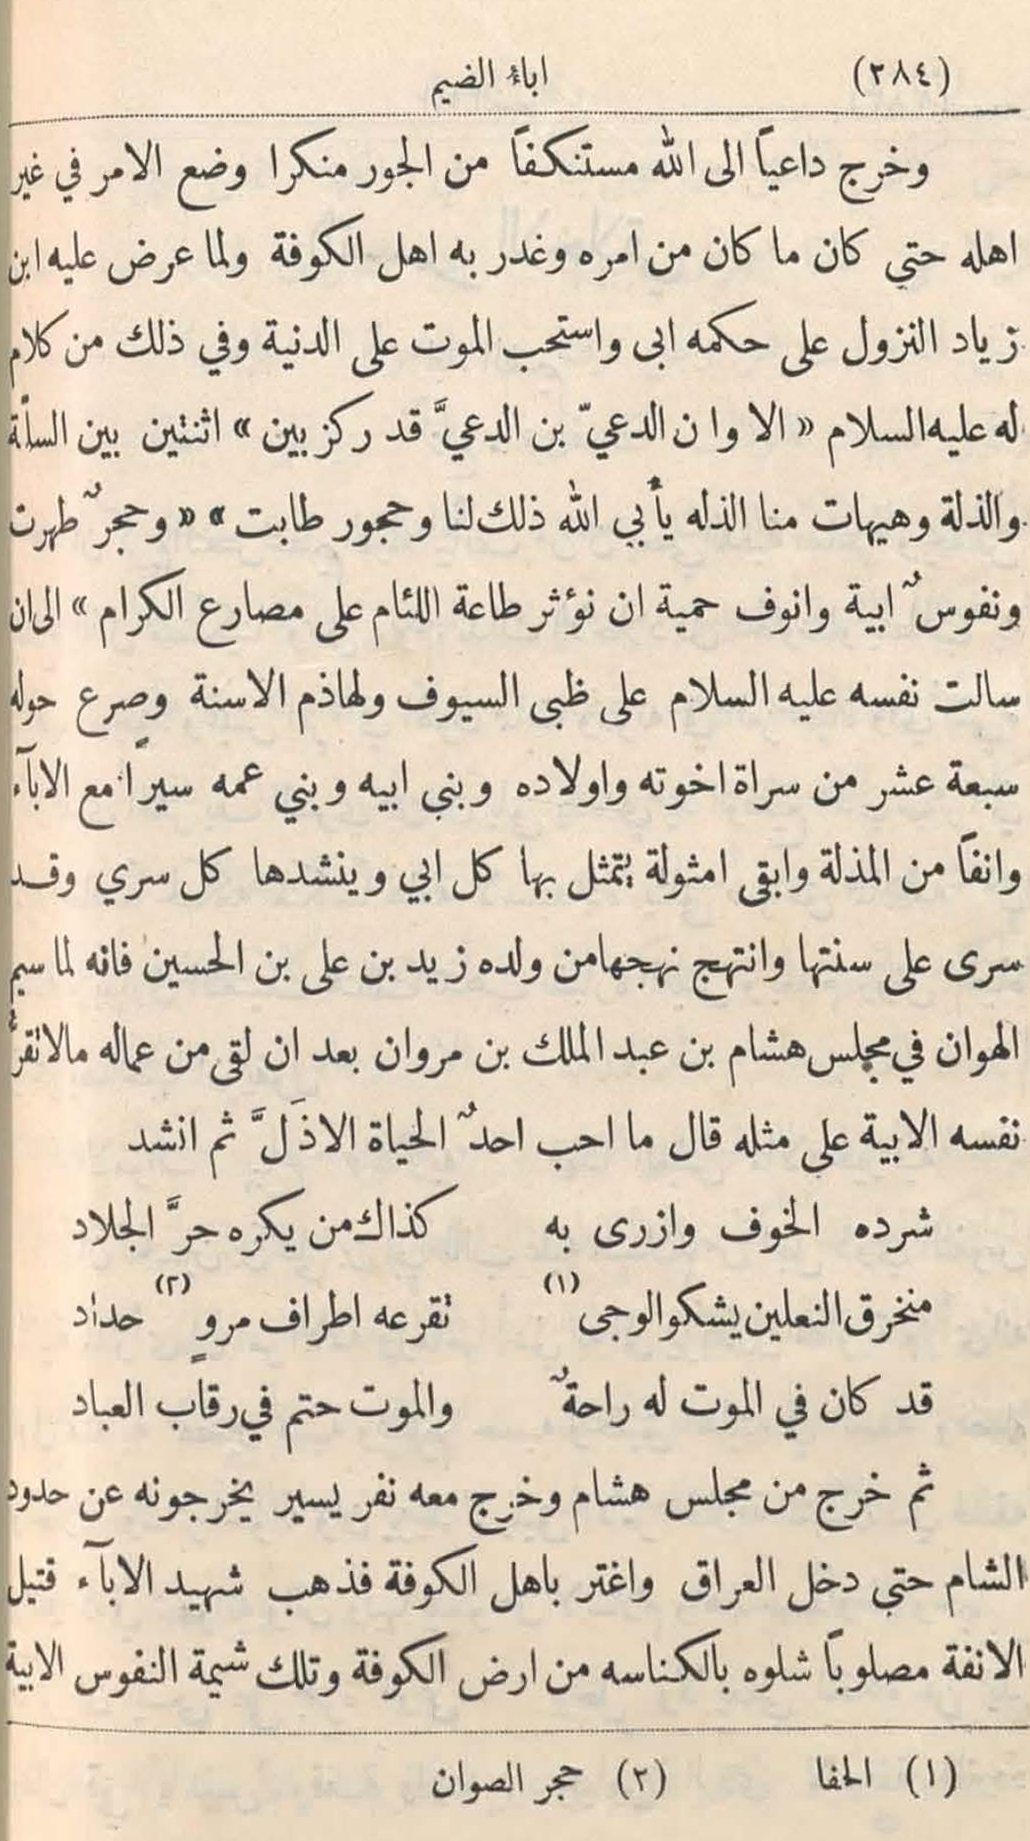 (٢٨٤) اباء الضيم
وخرج داعياً الى الله مستنكفاً من الجور منكرا وضع الامر في غير
اهله حتى كان ما كان من امره وغدر به اهل الكوفة ولما عرض عليه ابن
زياد النزول على حكمه ابى واستحب الموت على الدنية وفي ذلك من كلام
له عليه السلام « الا وان الدعيّ بن الدعيَّ قد ركز بين » اثنتين بين السلَّة
والذلة وهيهات منا الذله يأبي الله ذلك لنا وحجور طابت » « وحجرٌ طهرت
ونفوسٌ ابية وانوف حمية ان نؤثر طاعة اللئام على مصارع الكرام » الى ان
سالت نفسه عليه السلام على ظبى السيوف ولهاذم الاسنة وصرع حوله
سبعة عشر من سراة اخوته واولاده وبني ابيه وبني عمه سيراً مع الابآء
وانفاً من المذلة وابقى امثولة يتمثل بها كل ابي وينشدها كل سري وقد
سرى على سنتها وانتهج نهجها من ولده زيد بن على بن الحسين فانه لما سيم
الهوان في مجلس هشام بن عبد الملك بن مروان بعد ان لقى من عماله مالا تقرُّ
نفسه الابية على مثله قال ما احب احدٌ الحياة الا ذَلَّ ثم انشد
شرده الخوف وازرى به كذاك من يكره حرَّ الجلاد
منخرق النعلين يشكو الوجى (١) تقرعه اطراف مروٍ (٢) حداد
قد كان في الموت له راحةٌ والموت حتم في رقاب العباد
ثم خرج من مجلس هشام وخرج معه نفر يسير يخرجونه عن حدود
الشام حتى دخل العراق واغتر باهل الكوفة فذهب شهيد الابآء قتيل
الانفة مصلوباً شلوه بالكناسه من ارض الكوفة وتلك شيمة النفوس الابية
(١) الحفا (٢) حجر الصوان